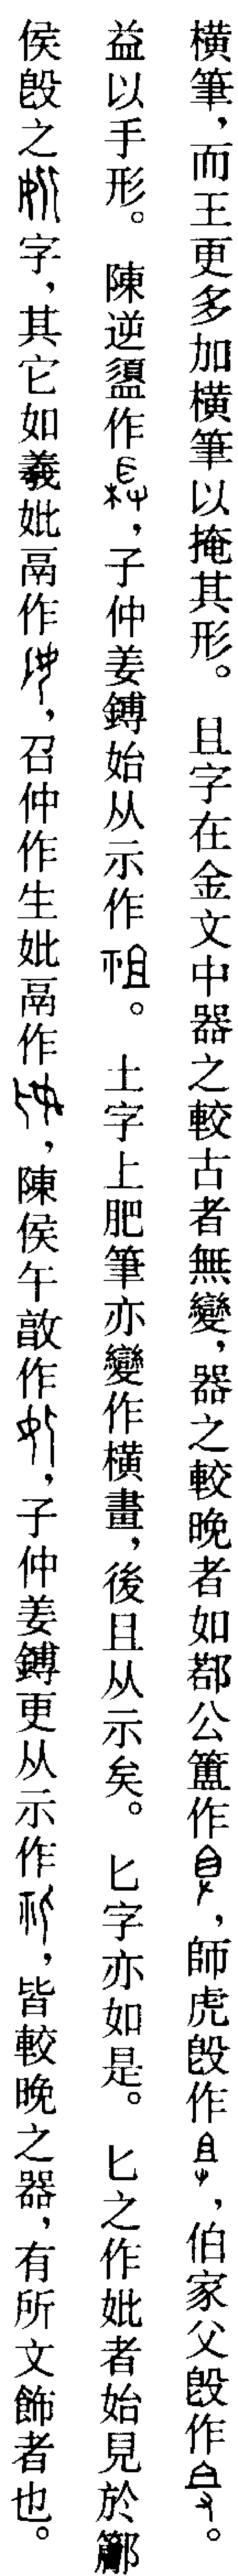 橫筆，而王更多加橫筆以掩其形。且字在金文中器之較古者無變，器之較晚者如鄀公簠作，師虎𣪘作，伯家父𣪘作。
益以手形。陳逆簋作，子仲姜鎛始从示作祖。土字上肥筆亦變作橫畫，後且从示矣。匕字亦如是。匕之作妣者始見於
侯𣪘之字，其它如義妣鬲作，召仲作生妣鬲作，陳侯午敦作，子仲姜鎛更从示作，皆較晚之器，有所文飾者也。